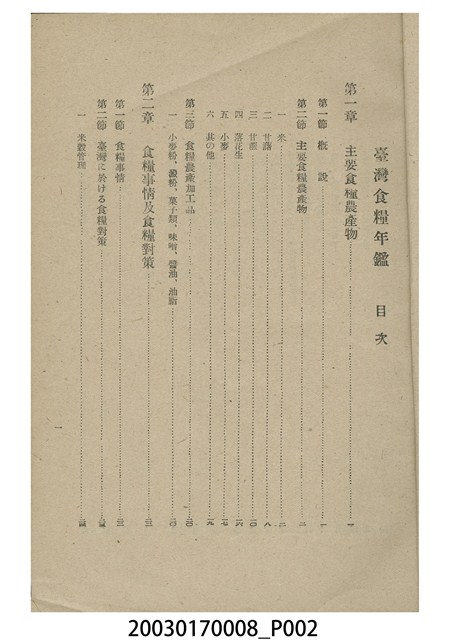 臺灣食糧年鑑 目次
第一章 主要食糧農產物
第一節 概說
第二節 主要食糧農產物
一 米
二 甘藷
三 甘蔗
四 落花生
五 小麥
六 其の他
第三節 食糧農產加工品
一 小麥粉、澱粉、菓子類、味噌、醬油、油脂
第二章 食糧事情及食糧對策
第一節 食糧事情
第二節 臺灣に於ける食糧對策
一 米穀管理
一
20030170008_P002